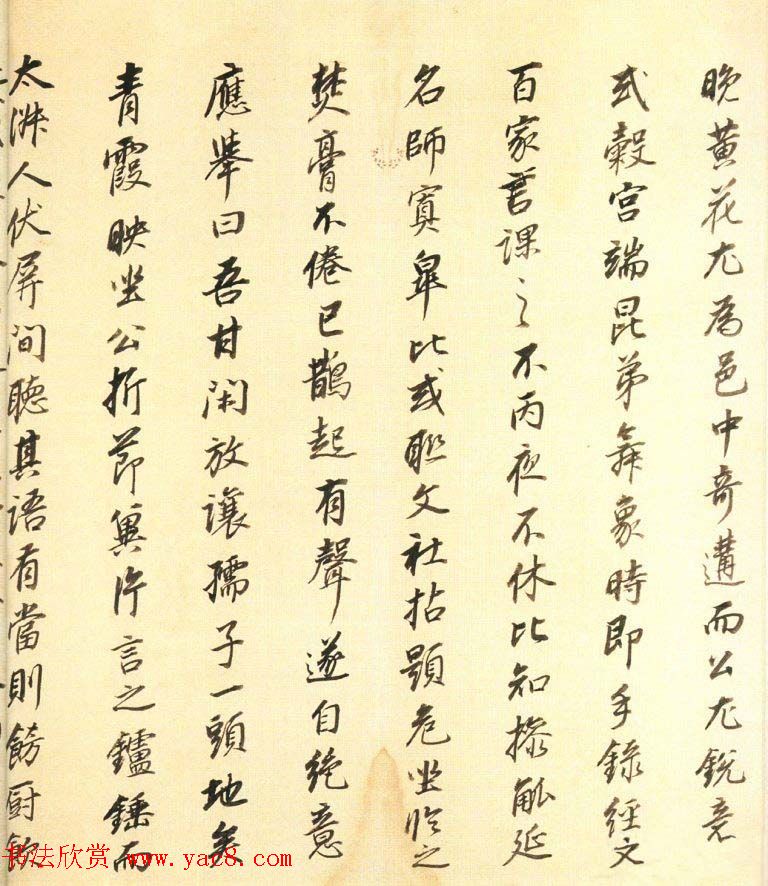 晚黃花尤為邑中奇遘而公尤銳意
式穀宮端昆弟舞象時即手錄經文
百家言課之不丙夜不休比知操觚延
名師賓皐比或聯文社拈題危坐臨之
焚膏不倦已鵲起有聲遂自絕意
應舉曰吾甘閑放讓孺子一頭地矣
青霞映坐公折節冀片言之鑪錘而
太淑人伏屏間聽其語有當則飭廚飲
书法欣赏 www.yac8.com